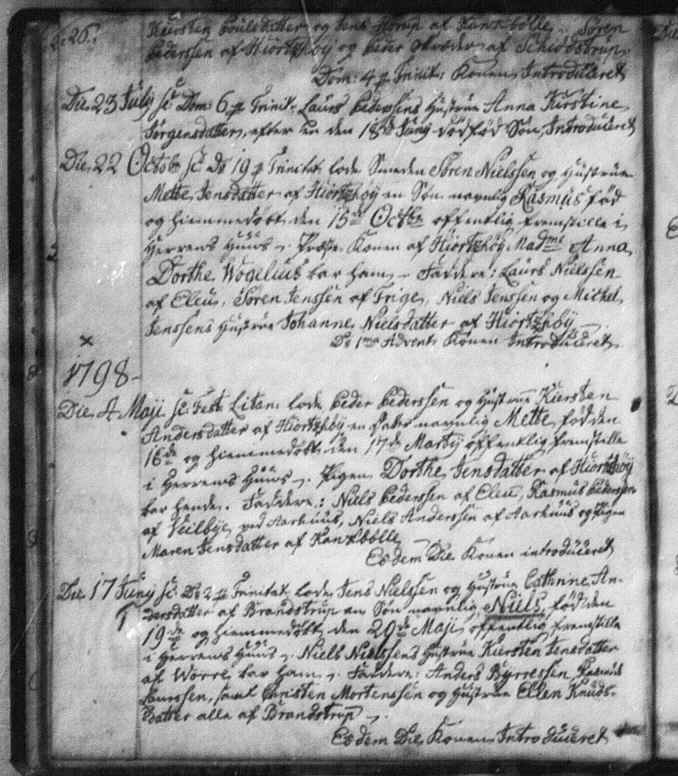 Kiersten Poulsdatter og Jens Storup af Kankbølle. Søren
Pedersen af Hiortshøy og Peder Skrøder af Schiødstrup
Dom: 4 p Trinit: Konen Introduceret
Die 23 July sc Dom 6 p Trinit. Laurs Pedersens Hustrue Anna Kirstine
Jørgensdatter, efter en den 18de Juny dødfød Søn, Introduceret
Die 22 Octobr sc Do 19 p Trinitat lode Smeden Søren Nielssen og Hustrue
Mette Jensdatter af Hiortshøy en Søn navnlig Rasmus fød
og hiemmedøbt den 15de Octbr offentlig fremstille i
Herrens Huus. Konen af Hiortshøy Madme Anna
Dorthe Wogelius bar ham. Faddere: Laurs Nielssen
af Eleu, Søren Jenssen af Trige, Niels Jenssen og Michel
Jenssens Hustrue Johanne Nielsdatter af Hiortshøy
Do 1me Advent Konen Introduceret
×
1798
Die 4 Maji sc Fest Litan: lode Peder Pederssen og Hustrue Kiersten
Andersdatter af Hiortshøy en Datter navnlig Mette, fød den
16de og hiemmedøbt den 17de Martij offentlig fremstille
i Herrens Huus. Pigen Dorthe Jensdatter af Hiortshøy
bar hende. Faddere: Niels Pederssen af Eleu, Rasmus Pederssen
af Veilbye ved Aarhuus, Niels Anderssen af Aarhuus og Pigen
Maren Jensdatter af Kankbølle
Eodem Die Konen introduceret
Die 17 Juny sc: Do 2 p Trinitat lode Jens Nielssen og Hustrue Cathrine An-
dersdatter af Brandstrup en Søn navnlig Niels, fød den
19de og hiemmedøbt den 20de Maji, offentlig fremstille
i Herrens Huus. Niels Nielssens Hustrue Kiersten Jensdatter
af Worre bar ham. Faddere: Anders Byrressen, Rasmus
Laurssen, samt Christen Mortenssen og Hustrue Ellen Knuds-
datter alle af Brandstrup
Eodem Die Konen Introduceret